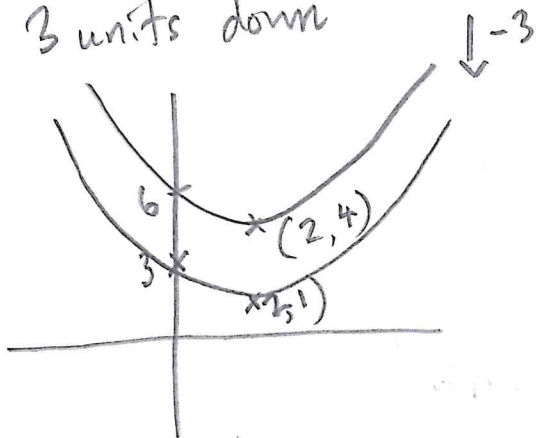 3 units down
↓-3
6
(2,4)
3
2,1)